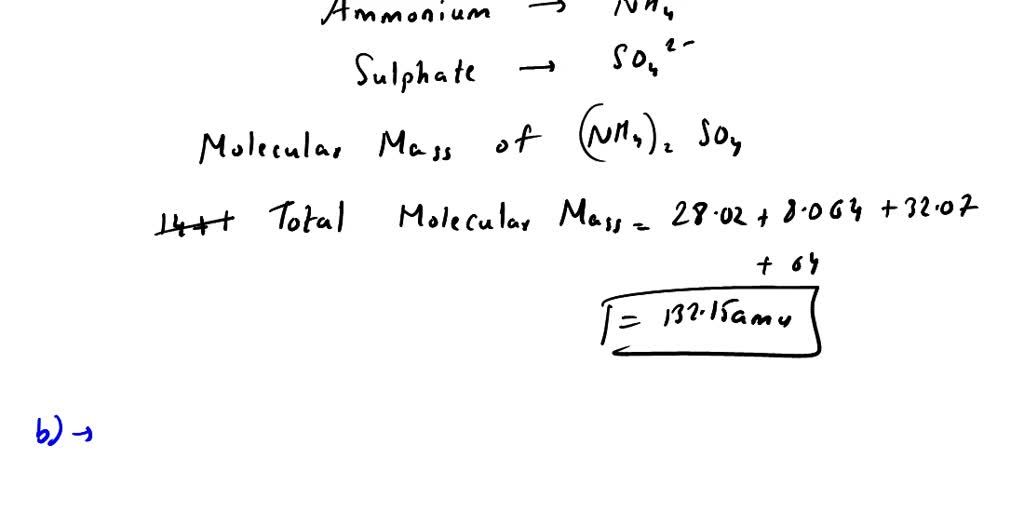 Ammonium → NH4
Sulphate → SO4 2-
Molecular Mass of (NH4)2 SO4
14++ Total Molecular Mass = 28.02 + 8.064 + 32.07
+ 64
= 132.15amu
b) →